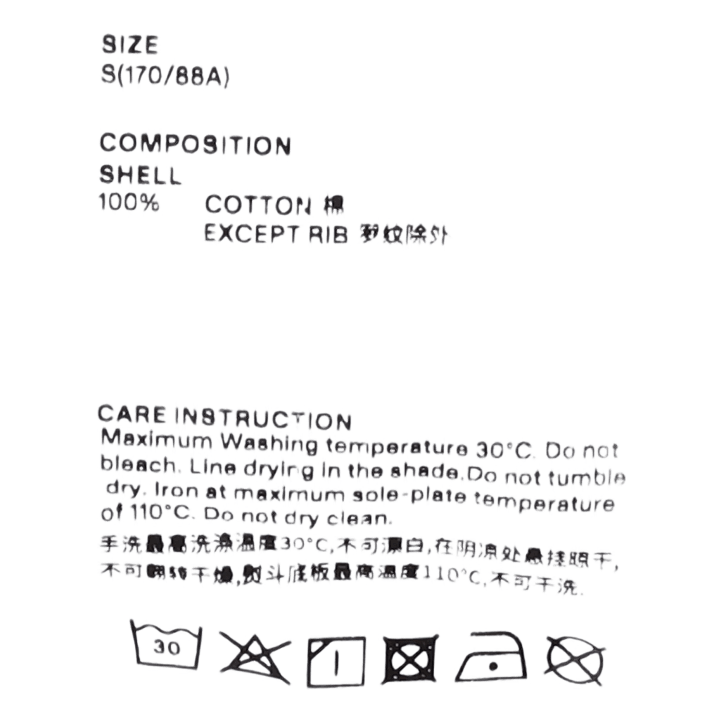 SIZE
S(170/88A)
COMPOSITION
SHELL
100% COTTON 棉
EXCEPT RIB 罗纹除外
CARE INSTRUCTION
Maximum Washing temperature 30°C. Do not
bleach. Line drying in the shade.Do not tumble
dry. Iron at maximum sole-plate temperature
of 110°C. Do not dry clean.
手洗最高洗涤温度30°C,不可漂白,在阴凉处悬挂晾干,
不可翻转干燥,熨斗底板最高温度110°C,不可干洗.
30